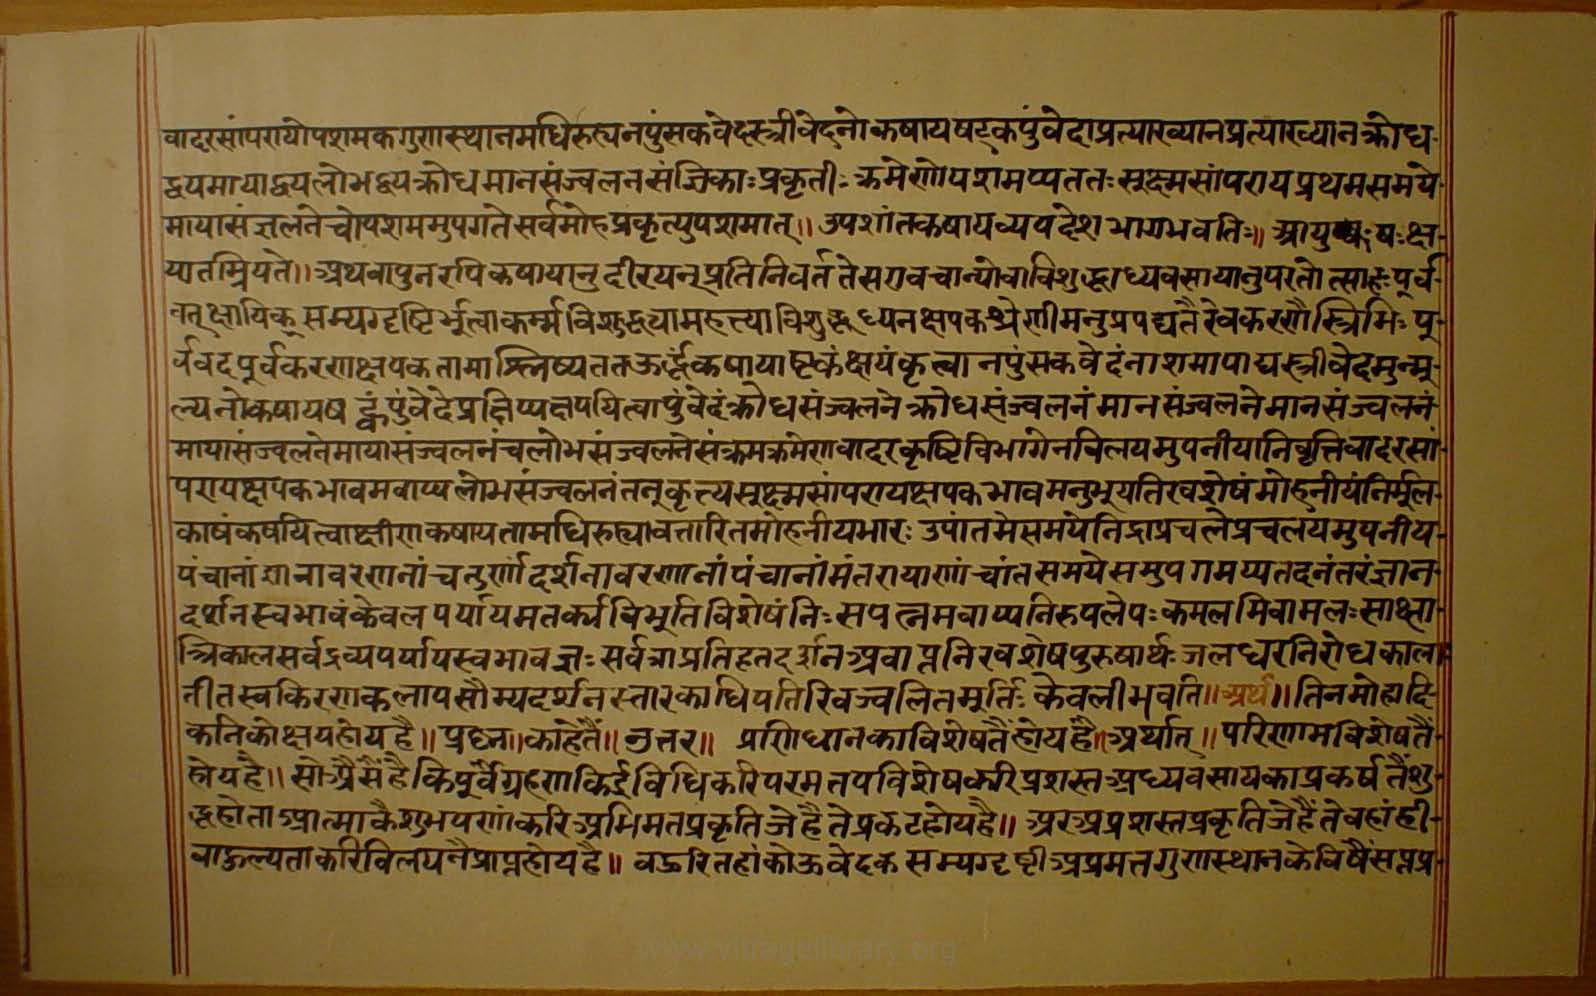 वादरसांपरायोपशमकगुणस्थानमधिरुह्यनपुंसकवेदस्त्रीवेदनोकषायषट्कपुंवेदाप्रत्याख्यानप्रत्याख्यानक्रोध-
द्वयमायाद्वयलोभद्वयक्रोधमानसंज्वलनसंज्ञिकाःप्रकृतीःक्रमेणोपशमप्यततःसूक्ष्मसांपरायप्रथमसमये-
मायासंज्वलनेचोपशममुपगतेसर्वमोहप्रकृत्युपशमात्॥ उपशांतकषायव्यपदेशभाग्भवतिः॥ आयुषःक्ष-
यातम्रियते॥ अथवापुनरपिकषायानुदीरयन्प्रतिनिवर्त्ततेसएवचान्योवाविशुद्धाध्यवसायानुपरतोत्साहःपूर्व-
वत्क्षायिकसम्यग्दृष्टिर्भूत्वाकर्म्मविशुद्ध्यामहत्त्याविशुद्ध्यनक्षपकश्रेणीमनुप्रपद्यतैरेवकरणैस्त्रिभिःपू-
र्ववदपूर्वकरणक्षपकतामाश्लिष्यततऊर्द्ध्वंकषायाष्टकंक्षयंकृत्वानपुंसकवेदंनाशमापाद्यस्त्रीवेदमुन्मू-
ल्यनोकषायषट्कंपुंवेदेप्रक्षिप्यक्षपयित्वापुंवेदंक्रोधसंज्वलनेक्रोधसंज्वलनंमानसंज्वलनेमानसंज्वलनं
मायासंज्वलनेमायासंज्वलनंचलोभसंज्वलनेसंक्रमक्रमेणवादरकृष्टिविभागेनविलयमुपनीयानिवृत्तिवादरसां-
परायक्षपकभावमवाप्यलोभसंज्वलनंतनूकृत्यसूक्ष्मसांपरायक्षपकभावमनुभूयतिरवशेषंमोहनीयंनिर्मूल-
काषंकषयित्वाक्षीणकषायतामधिरुह्यावत्तारितमोहनीयभारः उपांतमेसमयेनिद्राप्रचलेप्रचलयमुपनीय-
पंचानांज्ञानावरणानांचतुर्णांदर्शनावरणानांपंचानांमंतरायाणांचांतसमयेसमुपगमप्यतदनंतरंज्ञान-
दर्शनस्वभावंकेवलपर्यायमतर्क्यविभूतिविशेषंनिःसपत्नमवाप्यनिरुपलेपःकमलमिवामलःसाक्षा-
त्त्रिकालसर्वद्रव्यपर्यायस्वभावज्ञःसर्वत्राप्रतिहतदर्शनअवाप्तनिरवशेषपुरुषार्थःजलधरनिरोधकाला
तीतस्वकिरणकलापसौम्यदर्शनस्तारकाधिपतिरिवज्वलितमूर्तिःकेवलीभवति॥ अर्थ॥ तिनमोहादि-
कनिकोक्षयहोयहै॥ प्रश्न॥ काहेतैं॥ उत्तर॥ प्रणिधानकाविशेषतैंहोयहै॥ अर्थात्॥ परिणामविशेषतैं
होयहै॥ सोअैसैंहैकिपूर्वेग्रहणकिईविधिकरिपरमतपविशेषकरिप्रशस्तअध्यवसायकाप्रकर्षतैंशु-
द्धहोताआत्माकैशुभपणांकरिअभिमतप्रकृतिजेहैतेप्रकटहोयहै॥ अरअप्रशस्तप्रकृतिजेहैंतेवहांही-
वाहुल्यताकरिविलयनैप्राप्तहोयहै॥ वहुरितहांकोऊवेदकसम्यग्दृष्टीअप्रमत्तगुणस्थानकेविषैसप्तप्र-
www.vitragelibrary.org